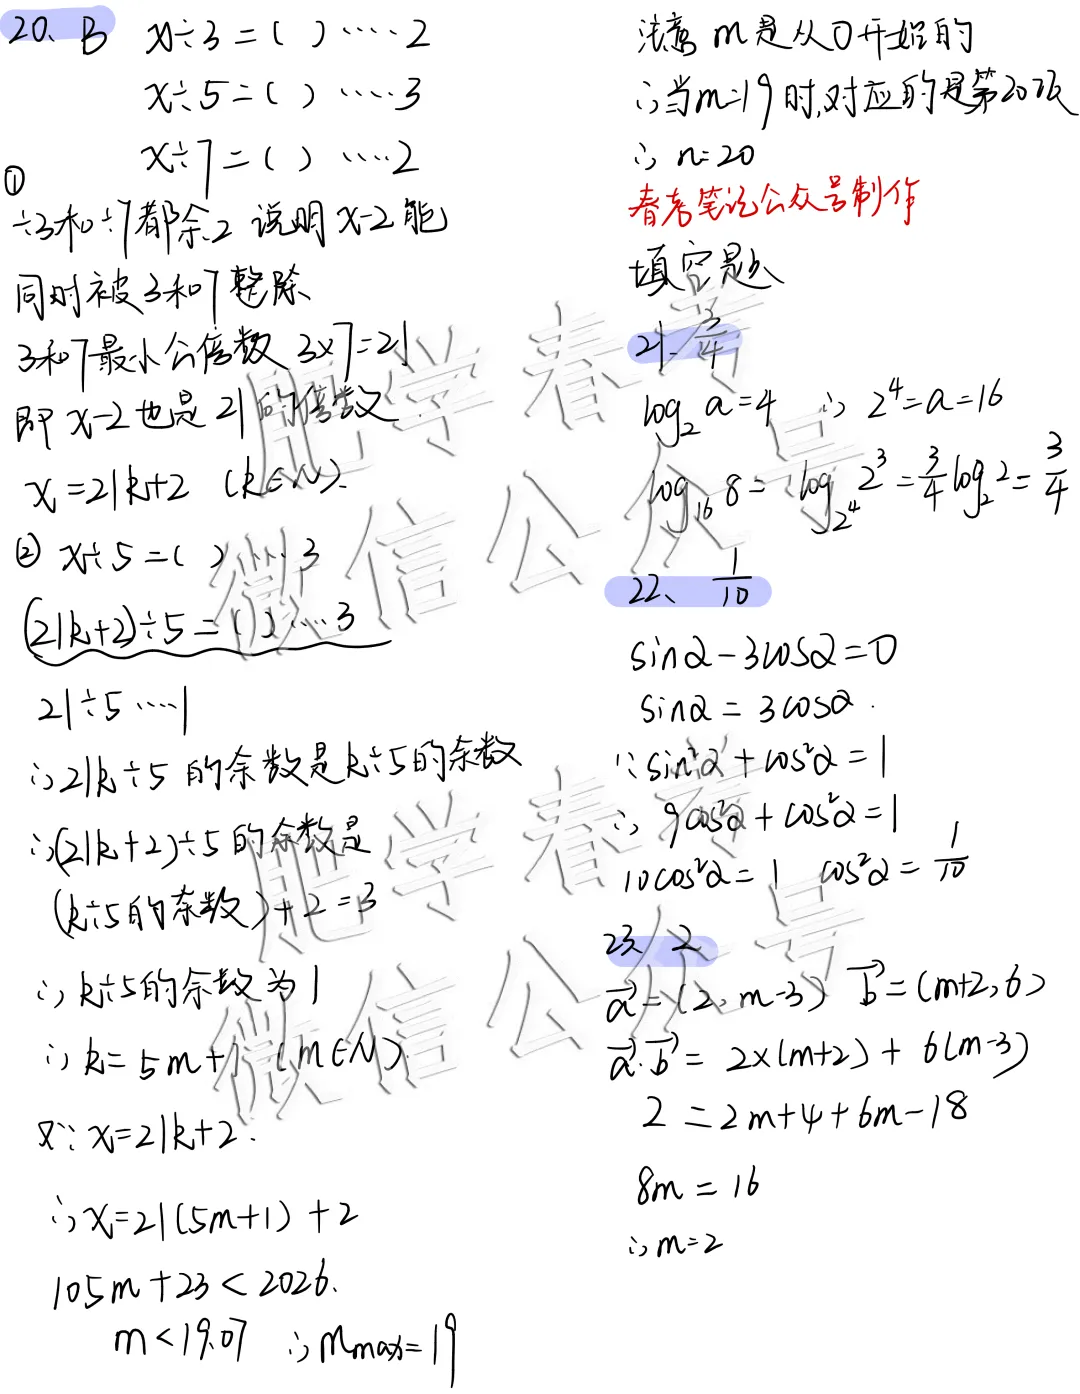 20、B x÷3=( )····2
x÷5=( )····3
x÷7=( )····2
①
÷3和÷7都余2 说明x-2能
同时被3和7整除
3和7最小公倍数 3×7=21
即x-2也是21的倍数
x=21k+2 (k∈N).
② x÷5=( )····3
(21k+2)÷5=( )····3
21÷5····1
∴21k÷5的余数是k÷5的余数
∴(21k+2)÷5的余数是
(k÷5的余数)+2=3
∴k÷5的余数为1
∴k=5m+1 (m∈N)
又∵x=21k+2.
∴x=21(5m+1)+2
105m+23<2026.
m<19.07 ∴mmax=19
注意m是从0开始的
∴当m=19时,对应的是第20项
∴n=20
春考笔记公众号制作
填空题
21、3/4
log₂a=4 ∴2⁴=a=16
log₁₆8=log_{2⁴}2³=3/4log₂2=3/4
22、1/10
sinα-3cosα=0
sinα=3cosα.
∵sin²α+cos²α=1
∴9cos²α+cos²α=1
10cos²α=1 cos²α=1/10
23、2
a→=(2,m-3) b→=(m+2,6)
a→·b→=2×(m+2)+6(m-3)
2=2m+4+6m-18
8m=16
∴m=2
肥学春考
微信公众号
肥学春考
微信公众号